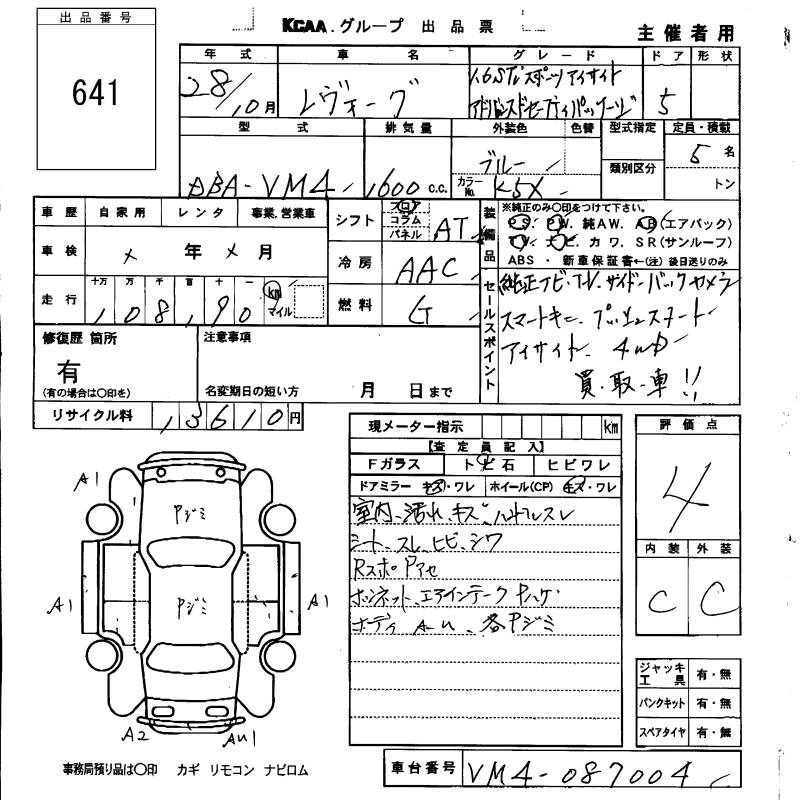 出品番号
641
KCAA.グループ 出品票
主催者用
年式 車名 グレード ドア 形状
28/10月 レヴォーグ 1.6STiスポーツアイサイト 5
アドバンスドセーフティパッケージ
型式 排気量 外装色 色替 型式指定 定員・積載
ブルー 5名
類別区分
DBA-VM4 1600 C.C. カラーNo. K5X トン
車歴 自家用 レンタ 事業.営業車
シフト フロア コラム パネル AT
装備品
※純正のみ〇印をつけて下さい。
PS. PW. 純AW. AB(エアバック)
TV. ナビ. カワ. SR(サンルーフ)
ABS・新車保証書←(注)後日送りのみ
車検 メ 年 メ 月
冷房 AAC
走行 十万 万 千 百 十 一
108,190 km マイル
燃料 G
セールスポイント
純正ナビ・TV.サイド・バックカメラ
スマートキー.プッシュスタート
アイサイト. 4WD
買・取・車!!
修復歴 箇所
有
(有の場合は〇印を)
注意事項
名変期日の短い方 月 日まで
リサイクル料 13610円
現メーター指示 km
【査定員記入】
Fガラス トビ石 ヒビワレ
ドアミラー キズ・ワレ ホイール(CP) キズ・ワレ
室内、汚れ、キズ、ハンドルスレ
シート、スレ、ヒビ、シワ
Rスポ Pアセ
ボンネット、エアインテーク Pハゲ
ボディ A〜U、各Pジミ
評価点
4
内装 外装
C C
A1
Pジミ
A1 Pジミ A1
A2 AU1
ジャッキ工具 有・無
パンクキット 有・無
スペアタイヤ 有・無
事務局預り品は〇印 カギ リモコン ナビロム
車台番号 VM4-087004